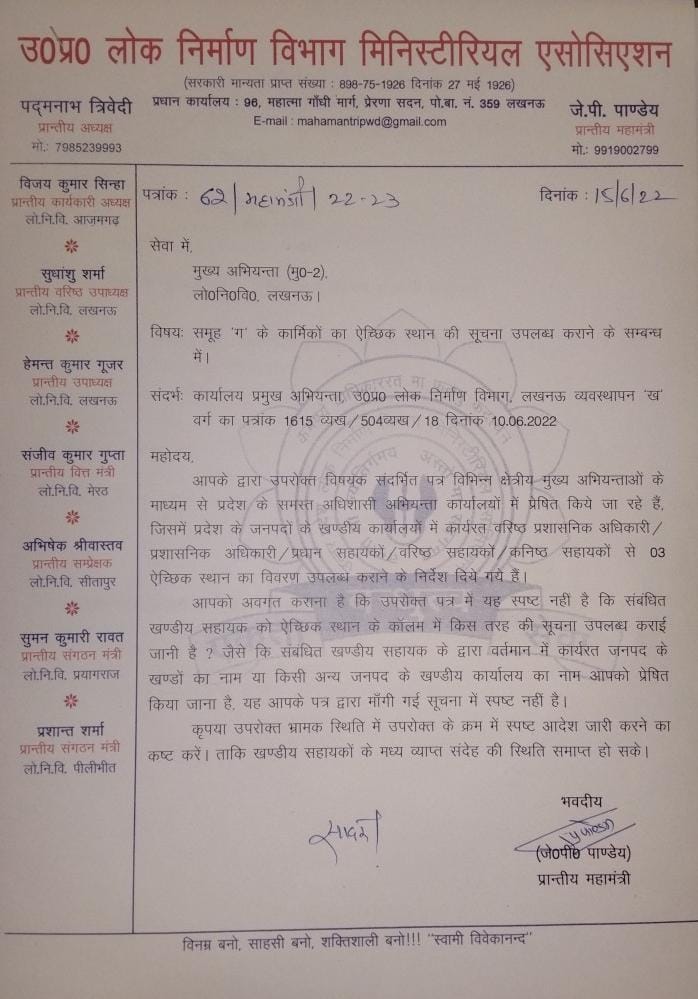 उ0प्र0 लोक निर्माण विभाग मिनिस्टीरियल एसोसिएशन
(सरकारी मान्यता प्राप्त संख्या : 898-75-1926 दिनांक 27 मई 1926)
प्रधान कार्यालय : 96, महात्मा गाँधी मार्ग, प्रेरणा सदन, पो.बा. नं. 359 लखनऊ
E-mail : mahamantripwd@gmail.com
पद्मनाभ त्रिवेदी
प्रान्तीय अध्यक्ष
मो.: 7985239993
जे.पी. पाण्डेय
प्रान्तीय महामंत्री
मो.: 9919002799
विजय कुमार सिन्हा
प्रान्तीय कार्यकारी अध्यक्ष
लो.नि.वि. आज़मगढ़
सुधांशु शर्मा
प्रान्तीय वरिष्ठ उपाध्यक्ष
लो.नि.वि. लखनऊ
हेमन्त कुमार गूजर
प्रान्तीय उपाध्यक्ष
लो.नि.वि. लखनऊ
संजीव कुमार गुप्ता
प्रान्तीय वित्त मंत्री
लो.नि.वि. मेरठ
अभिषेक श्रीवास्तव
प्रान्तीय सम्प्रेक्षक
लो.नि.वि. सीतापुर
सुमन कुमारी रावत
प्रान्तीय संगठन मंत्री
लो.नि.वि. प्रयागराज
प्रशान्त शर्मा
प्रान्तीय संगठन मंत्री
लो.नि.वि. पीलीभीत
पत्रांक : 62/महामंत्री/22-23
दिनांक : 15/6/22
सेवा में,
मुख्य अभियन्ता (मु0-2),
लो0नि0वि0, लखनऊ।
विषयः समूह 'ग' के कार्मिकों का ऐच्छिक स्थान की सूचना उपलब्ध कराने के सम्बन्ध
में।
संदर्भः कार्यालय प्रमुख अभियन्ता, उ0प्र0 लोक निर्माण विभाग, लखनऊ व्यवस्थापन 'ख'
वर्ग का पत्रांक 1615 व्यख/504व्यख/18 दिनांक 10.06.2022
महोदय,
आपके द्वारा उपरोक्त विषयक संदर्भित पत्र विभिन्न क्षेत्रीय मुख्य अभियन्ताओं के
माध्यम से प्रदेश के समस्त अधिशासी अभियन्ता कार्यालयों में प्रेषित किये जा रहे हैं,
जिसमें प्रदेश के जनपदों के खण्डीय कार्यालयों में कार्यरत वरिष्ठ प्रशासनिक अधिकारी/
प्रशासनिक अधिकारी/प्रधान सहायकों/वरिष्ठ सहायकों/कनिष्ठ सहायकों से 03
ऐच्छिक स्थान का विवरण उपलब्ध कराने के निर्देश दिये गये हैं।
आपको अवगत कराना है कि उपरोक्त पत्र में यह स्पष्ट नहीं है कि संबंधित
खण्डीय सहायक को ऐच्छिक स्थान के कॉलम में किस तरह की सूचना उपलब्ध कराई
जानी है ? जैसे कि संबंधित खण्डीय सहायक के द्वारा वर्तमान में कार्यरत जनपद के
खण्डों का नाम या किसी अन्य जनपद के खण्डीय कार्यालय का नाम आपको प्रेषित
किया जाना है, यह आपके पत्र द्वारा माँगी गई सूचना में स्पष्ट नहीं है।
कृपया उपरोक्त भ्रामक स्थिति में उपरोक्त के क्रम में स्पष्ट आदेश जारी करने का
कष्ट करें। ताकि खण्डीय सहायकों के मध्य व्याप्त संदेह की स्थिति समाप्त हो सके।
सादर
भवदीय
(जे0पी0 पाण्डेय)
प्रान्तीय महामंत्री
विनम्र बनो, साहसी बनो, शक्तिशाली बनो!!! "स्वामी विवेकानन्द"